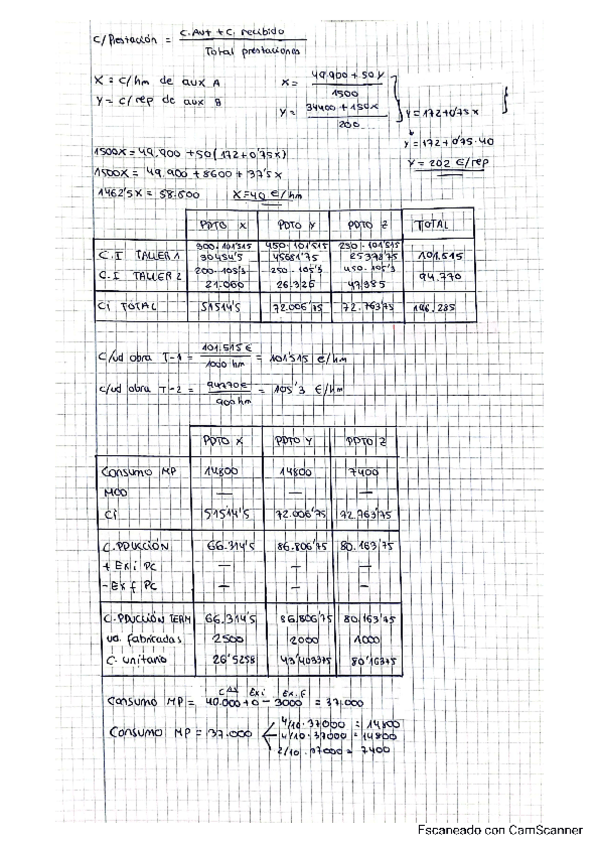 c/Prestación = C. Aut + C. recibido
Total prestaciones
X = c/hm de aux A X = 49.900 + 50y
1500
Y = c/rep de aux B Y = 34400 + 150x
200
Y = 172 + 0'75x
Y = 172 + 0'75·40
Y = 202 €/rep
1500X = 49.900 + 50(172 + 0'75x)
1500X = 49.900 + 8600 + 37'5x
1462'5X = 58.500 X = 40 €/hm
PDTO X PDTO Y PDTO Z TOTAL
300·101'515 450·101'515 250·101'515
C.I TALLER 1 30454'5 45681'75 25378'75 101.515
200·105'3 250·105'3 450·105'3
C.I TALLER 2 21.060 26.325 47.385 94.770
Ci TOTAL 51514'5 72.006'75 72.763'75 196.285
c/ud obra T-1 = 101.515 € = 101'515 €/hm
1000 hm
c/ud obra T-2 = 94770 € = 105'3 €/hm
900 hm
PDTO X PDTO Y PDTO Z
Consumo MP 14800 14800 7400
MOD — — —
Ci 51514'5 72.006'75 72.763'75
C. PDUCCIÓN 66.314'5 86.806'75 80.163'75
+ Ex i PC — — —
- Ex f PC — — —
C. PDUCCIÓN TERM 66.314'5 86.806'75 80.163'75
ud. fabricadas 2500 2000 1000
C. unitario 26'5258 43'403375 80'16375
Ex i Ex. f
Consumo MP = 40.000 + 0 - 3000 = 37.000
Consumo MP = 37.000 4/10·37000 = 14800
4/10·37000 = 14800
2/10·37000 = 7400
Escaneado con CamScanner